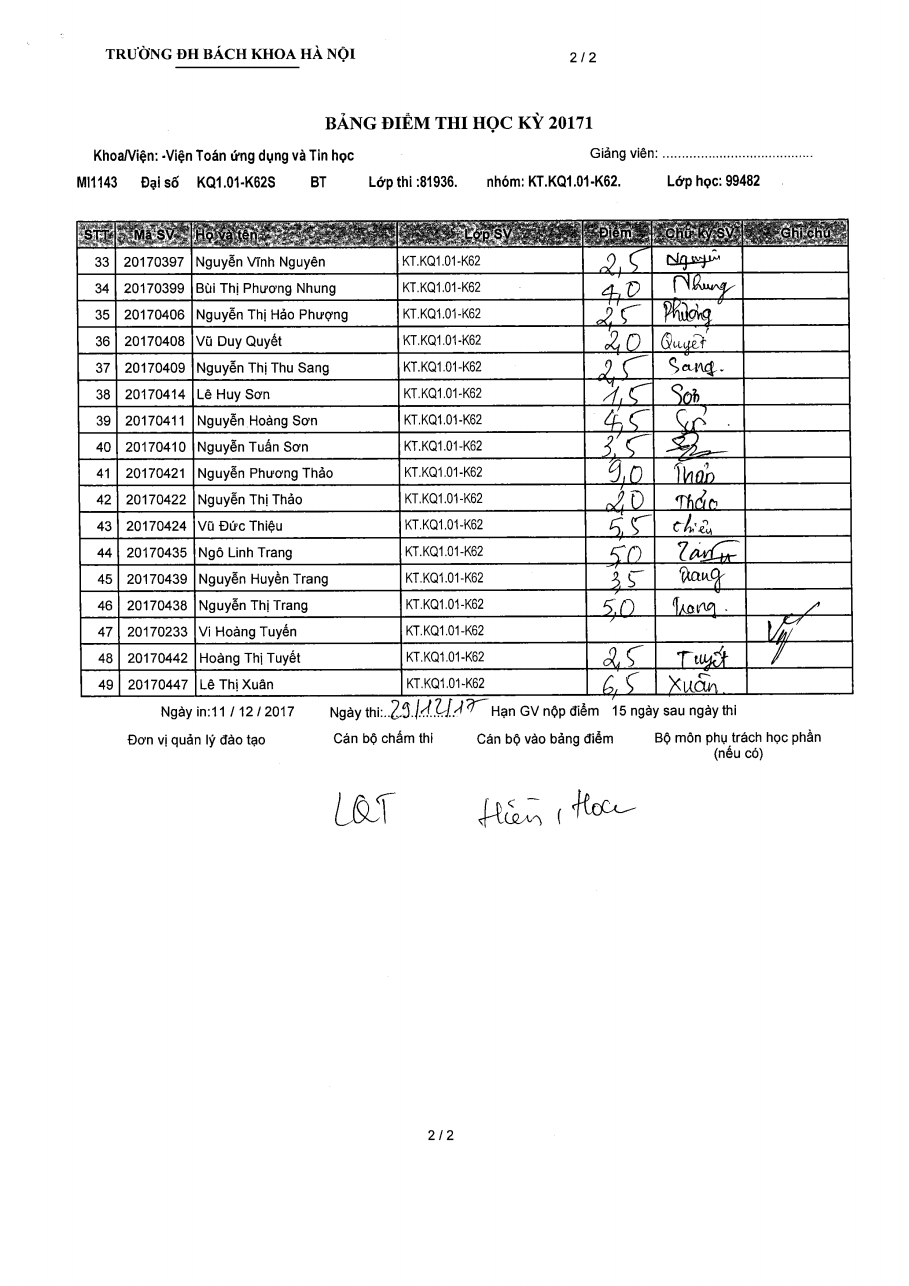 TRƯỜNG ĐH BÁCH KHOA HÀ NỘI 2 / 2
BẢNG ĐIỂM THI HỌC KỲ 20171
Khoa/Viện: -Viện Toán ứng dụng và Tin học Giảng viên: ........................................
MI1143 Đại số KQ1.01-K62S BT Lớp thi :81936. nhóm: KT.KQ1.01-K62. Lớp học: 99482
STT Mã SV Họ và tên Lớp SV Điểm Chữ ký SV Ghi chú
33 20170397 Nguyễn Vĩnh Nguyên KT.KQ1.01-K62 2,5 Nguyên
34 20170399 Bùi Thị Phương Nhung KT.KQ1.01-K62 4,0 Nhung
35 20170406 Nguyễn Thị Hảo Phượng KT.KQ1.01-K62 2,5 Phượng
36 20170408 Vũ Duy Quyết KT.KQ1.01-K62 2,0 Quyết
37 20170409 Nguyễn Thị Thu Sang KT.KQ1.01-K62 2,5 Sang.
38 20170414 Lê Huy Sơn KT.KQ1.01-K62 1,5 Sơn
39 20170411 Nguyễn Hoàng Sơn KT.KQ1.01-K62 4,5
40 20170410 Nguyễn Tuấn Sơn KT.KQ1.01-K62 3,5
41 20170421 Nguyễn Phương Thảo KT.KQ1.01-K62 9,0 Thảo
42 20170422 Nguyễn Thị Thảo KT.KQ1.01-K62 2,0 Thảo
43 20170424 Vũ Đức Thiệu KT.KQ1.01-K62 5,5 Thiệu
44 20170435 Ngô Linh Trang KT.KQ1.01-K62 5,0
45 20170439 Nguyễn Huyền Trang KT.KQ1.01-K62 3,5 Trang
46 20170438 Nguyễn Thị Trang KT.KQ1.01-K62 5,0 Trang.
47 20170233 Vi Hoàng Tuyến KT.KQ1.01-K62
48 20170442 Hoàng Thị Tuyết KT.KQ1.01-K62 2,5 Tuyết
49 20170447 Lê Thị Xuân KT.KQ1.01-K62 6,5 Xuân
Ngày in:11 / 12 / 2017 Ngày thi: 29/12/17 Hạn GV nộp điểm 15 ngày sau ngày thi
Đơn vị quản lý đào tạo Cán bộ chấm thi Cán bộ vào bảng điểm Bộ môn phụ trách học phần
(nếu có)
LQT Hiền, Hoa
2 / 2